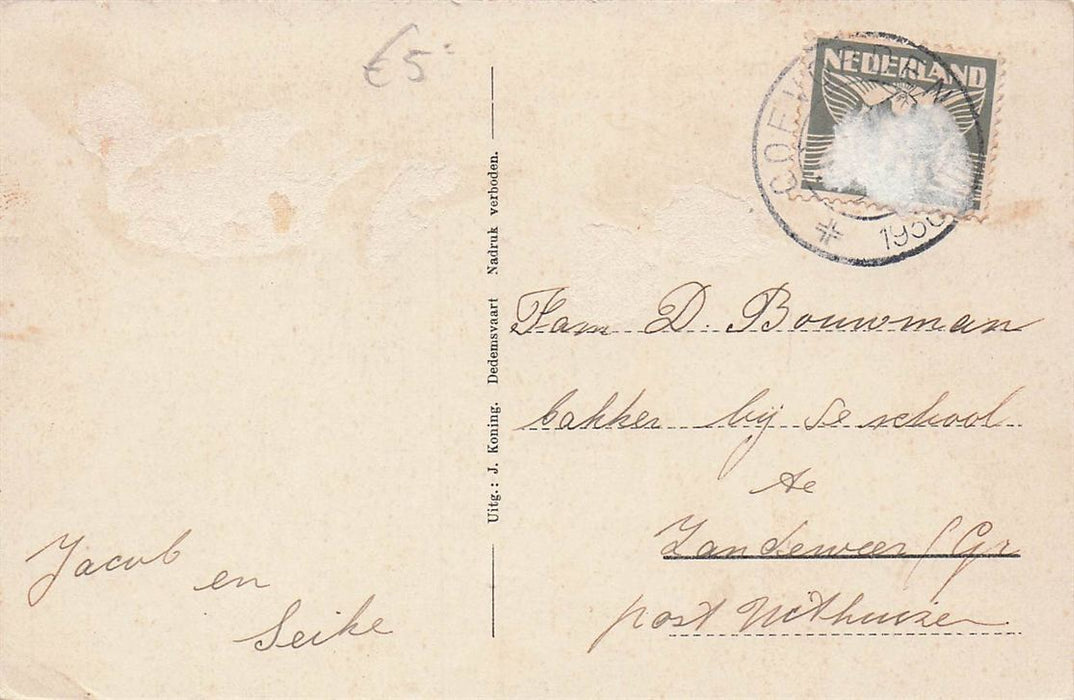 €5-
NEDERLAND
COEVORDEN
Uitg.: J. Koning. Dedemsvaart Nadruk verboden.
Fam D. Bouwman
bakker bij de school
te
Zandeweer (Gr
post Uithuizen
Jacob
en
Seike